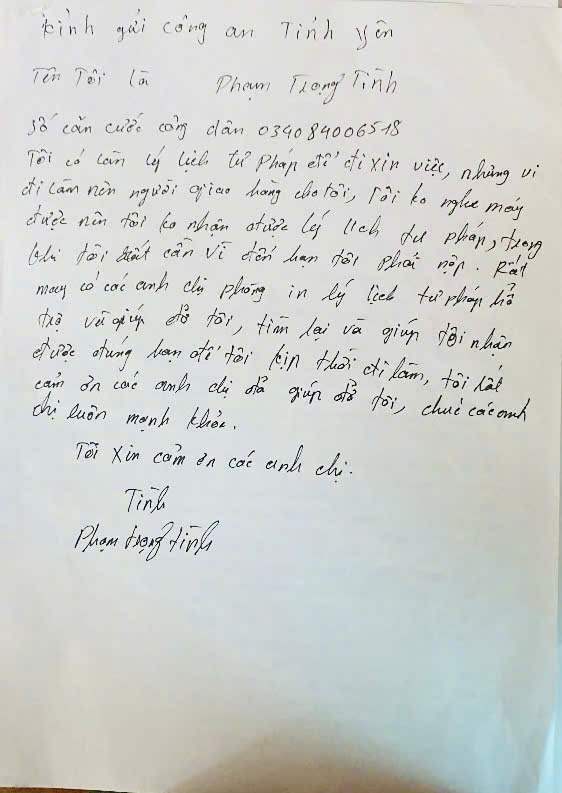 kính gửi công an Tỉnh yên
Tên Tôi là Phạm Trọng Tình
Số căn cước công dân 034084006518
Tôi có làm lý lịch tư Pháp để đi xin việc, nhưng vì
đi làm nên người giao hàng cho tôi, Tôi ko nghe máy
được nên tôi ko nhận được lý lịch tư pháp, trong
khi tôi rất cần vì đến hạn tôi phải nộp. Rất
may có các anh chị phòng in lý lịch tư pháp hổ
trợ và giúp đở tôi, tìm lại và giúp tôi nhận
được đúng hạn để tôi kịp thời đi làm, tôi rất
cảm ơn các anh chị đã giúp đở tôi, chúc các anh
chị luôn mạnh khỏe.
Tôi xin cảm ơn các anh chị.
Tình
Phạm trọng tình